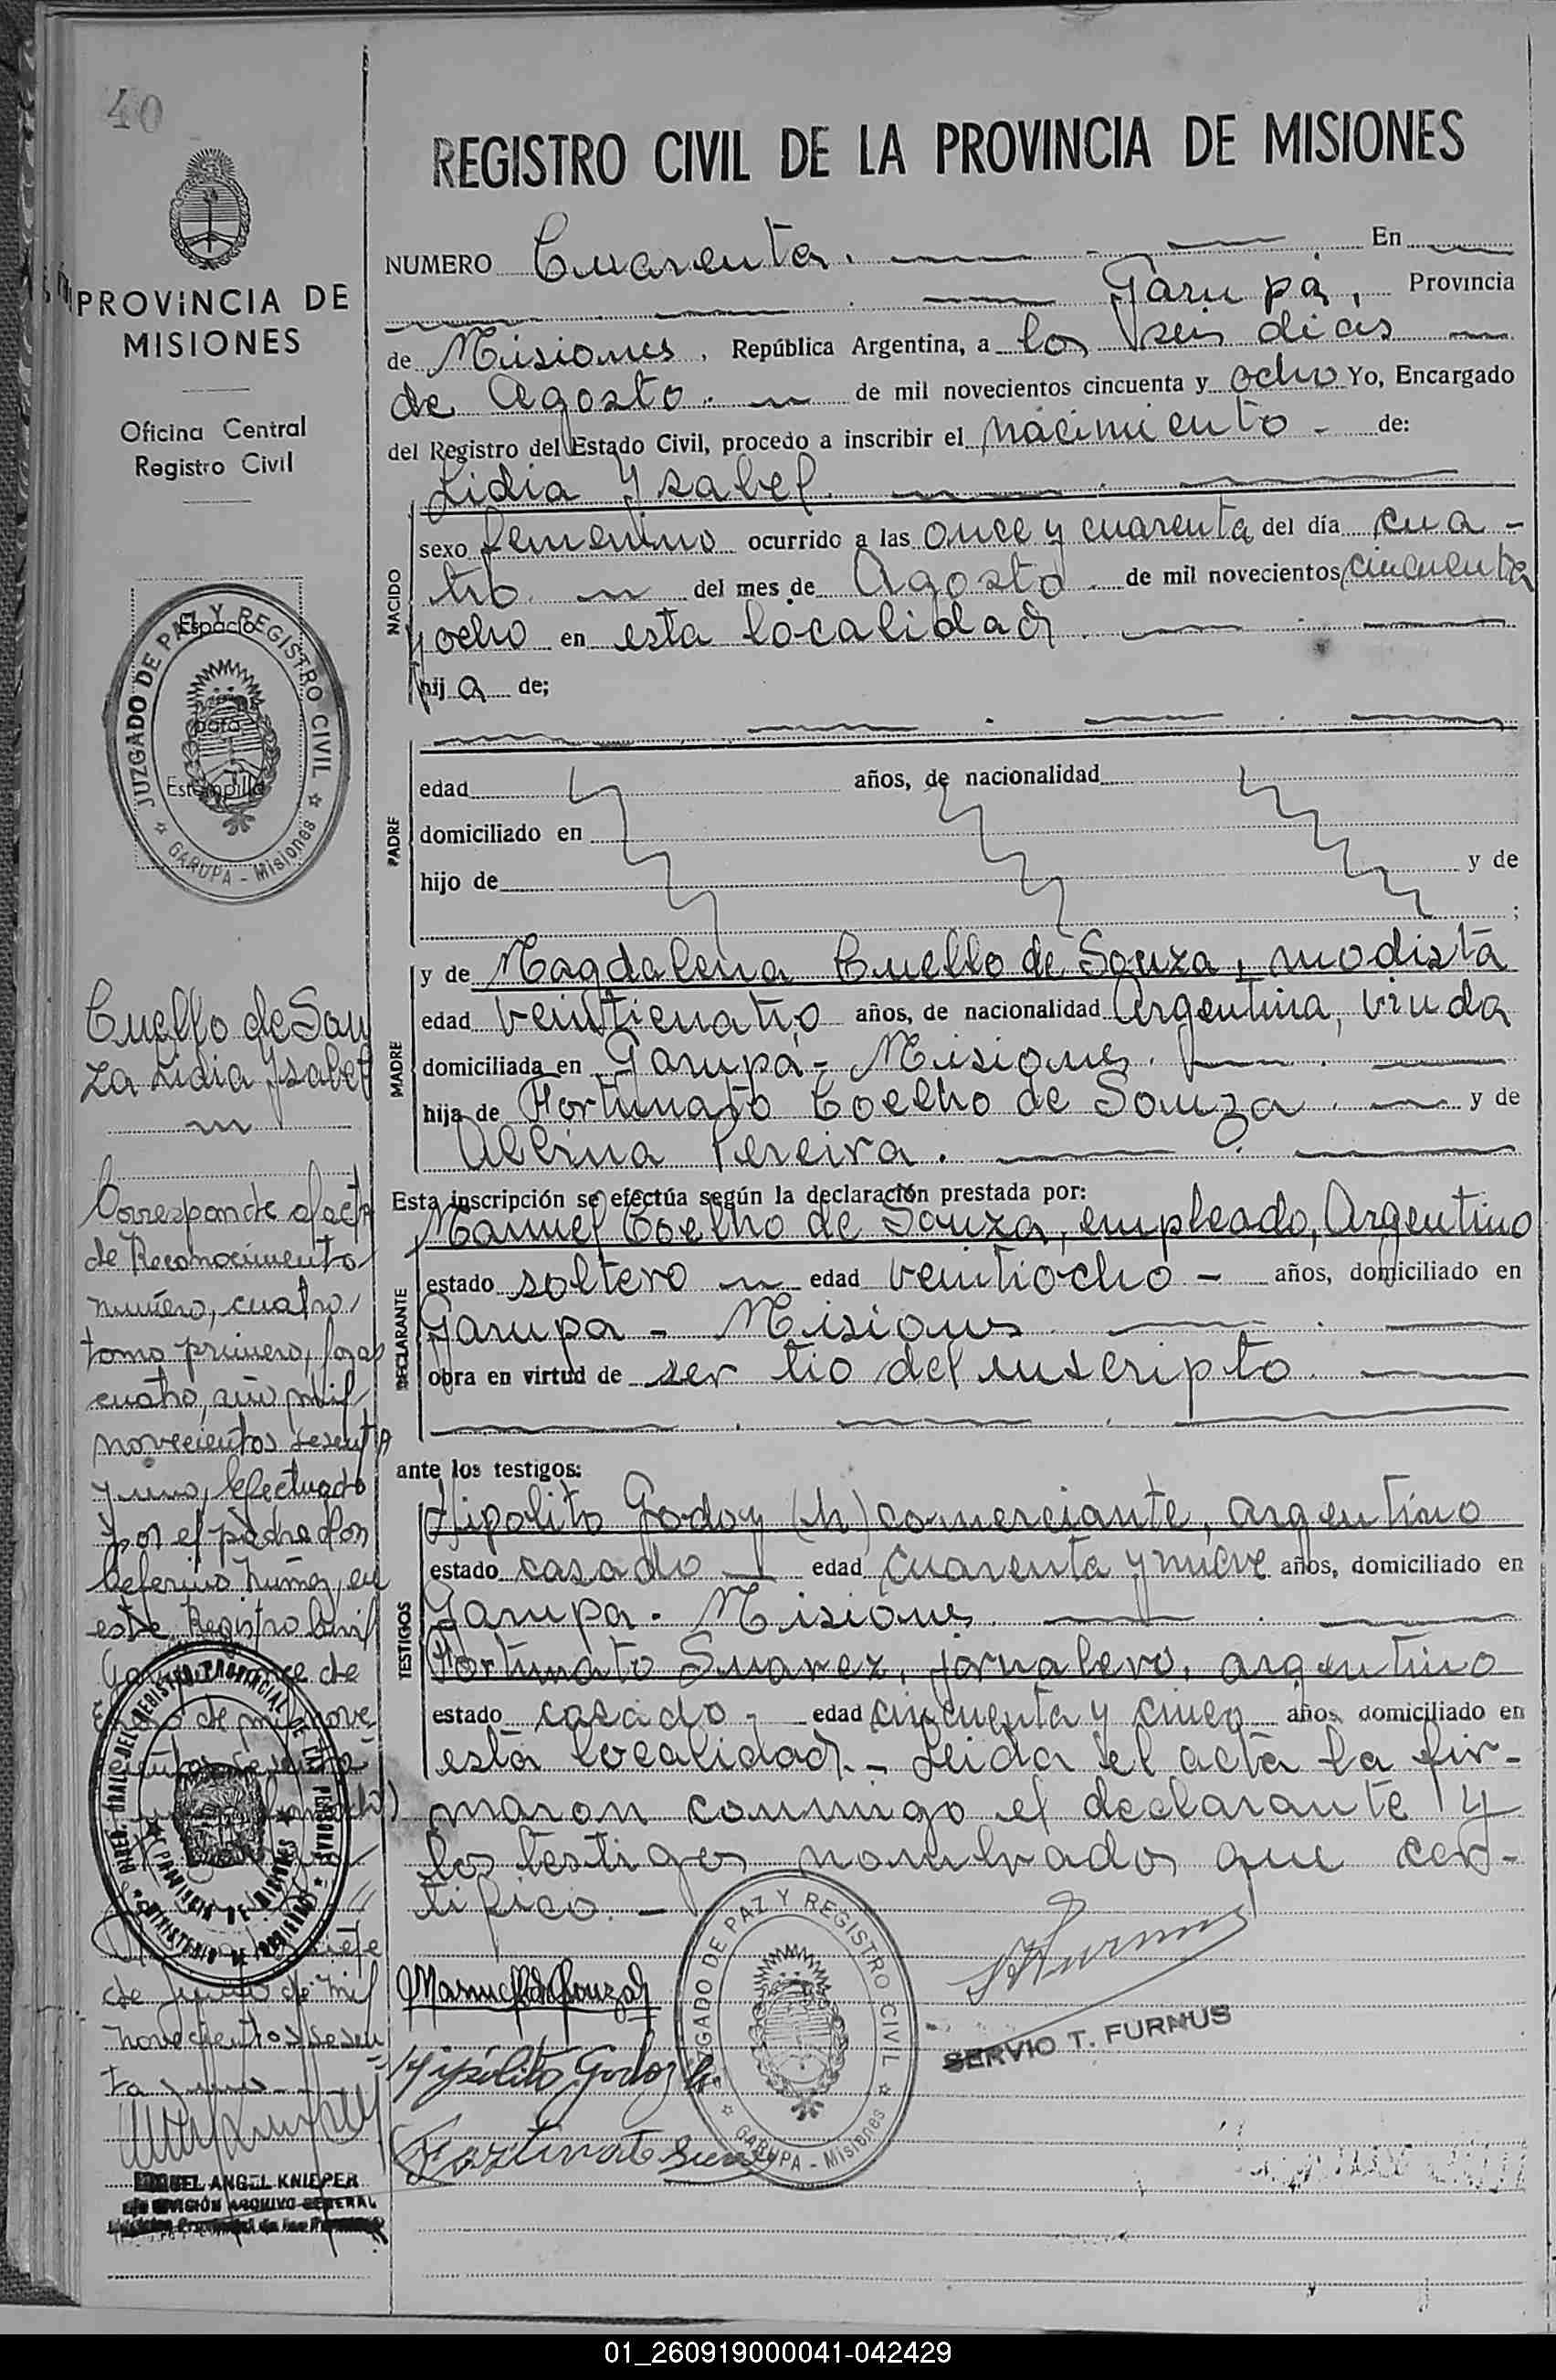 40
REGISTRO CIVIL DE LA PROVINCIA DE MISIONES
PROVINCIA DE
MISIONES
Oficina Central
Registro Civil
JUZGADO DE PAZ Y REGISTRO CIVIL
GARUPA - Misiones
Espacio
para
Estampilla
Cuello de Sou
za Lidia Ysabel
Corresponde al acta
de Reconocimiento
número, cuatro,
tomo primero, fojas
cuatro, año mil
novecientos sesenta
y uno, Efectuado
por el padre don
Ceferino Núñez, en
este Registro Civil
de
de mil nove
siete
de Junio de mil
novecientos sesen
ta y uno
MIGUEL ANGEL KNIEPER
DIVISIÓN ARCHIVO GENERAL
NUMERO Cuarenta. En
Garupá, Provincia
de Misiones, República Argentina, a los seis dias
de Agosto. de mil novecientos cincuenta y ocho Yo, Encargado
del Registro del Estado Civil, procedo a inscribir el nacimiento - de:
Lidia Ysabel.
NACIDO
sexo femenino ocurrido a las once y cuarenta del día cua-
tro. del mes de Agosto de mil novecientos cincuenta
y ocho en esta localidad.
hija de;
PADRE
edad años, de nacionalidad
domiciliado en
hijo de y de
;
MADRE
y de Magdalena Cuello de Souza, modista
edad veinticuatro años, de nacionalidad Argentina, viuda
domiciliada en Garupá - Misiones.
hija de Fortunato Coelho de Souza. y de
Albina Pereira.
Esta inscripción se efectúa según la declaración prestada por:
DECLARANTE
Manuel Coelho de Souza, empleado, Argentino
estado soltero edad veintiocho - años, domiciliado en
Garupa - Misiones
obra en virtud de ser tio del inscripto.
ante los testigos:
TESTIGOS
Hipolito Godoy (h) comerciante, argentino
estado casado edad cuarenta y nueve años, domiciliado en
Garupa - Misiones.
Fortunato Suarez, jornalero, argentino
estado casado - edad cincuenta y cinco años, domiciliado en
esta localidad. - Leida el acta la fir-
maron conmigo el declarante y
los testigos nombrados que cer-
tifico. -
Manuel C de Souza
Hipólito Godoy h.
Fortunato Suarez
JUZGADO DE PAZ Y REGISTRO CIVIL
GARUPA - Misiones
SERVIO T. FURNUS
01_260919000041-042429